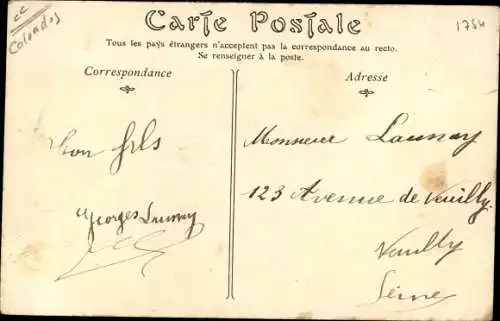 cc
Calvados
Carte Postale
1754
Tous les pays étrangers n'acceptent pas la correspondance au recto.
Se renseigner à la poste.
Correspondance
Adresse
Ton fils
Georges Launay
Monsieur Launay
123 Avenue de Neuilly
Neuilly
Seine